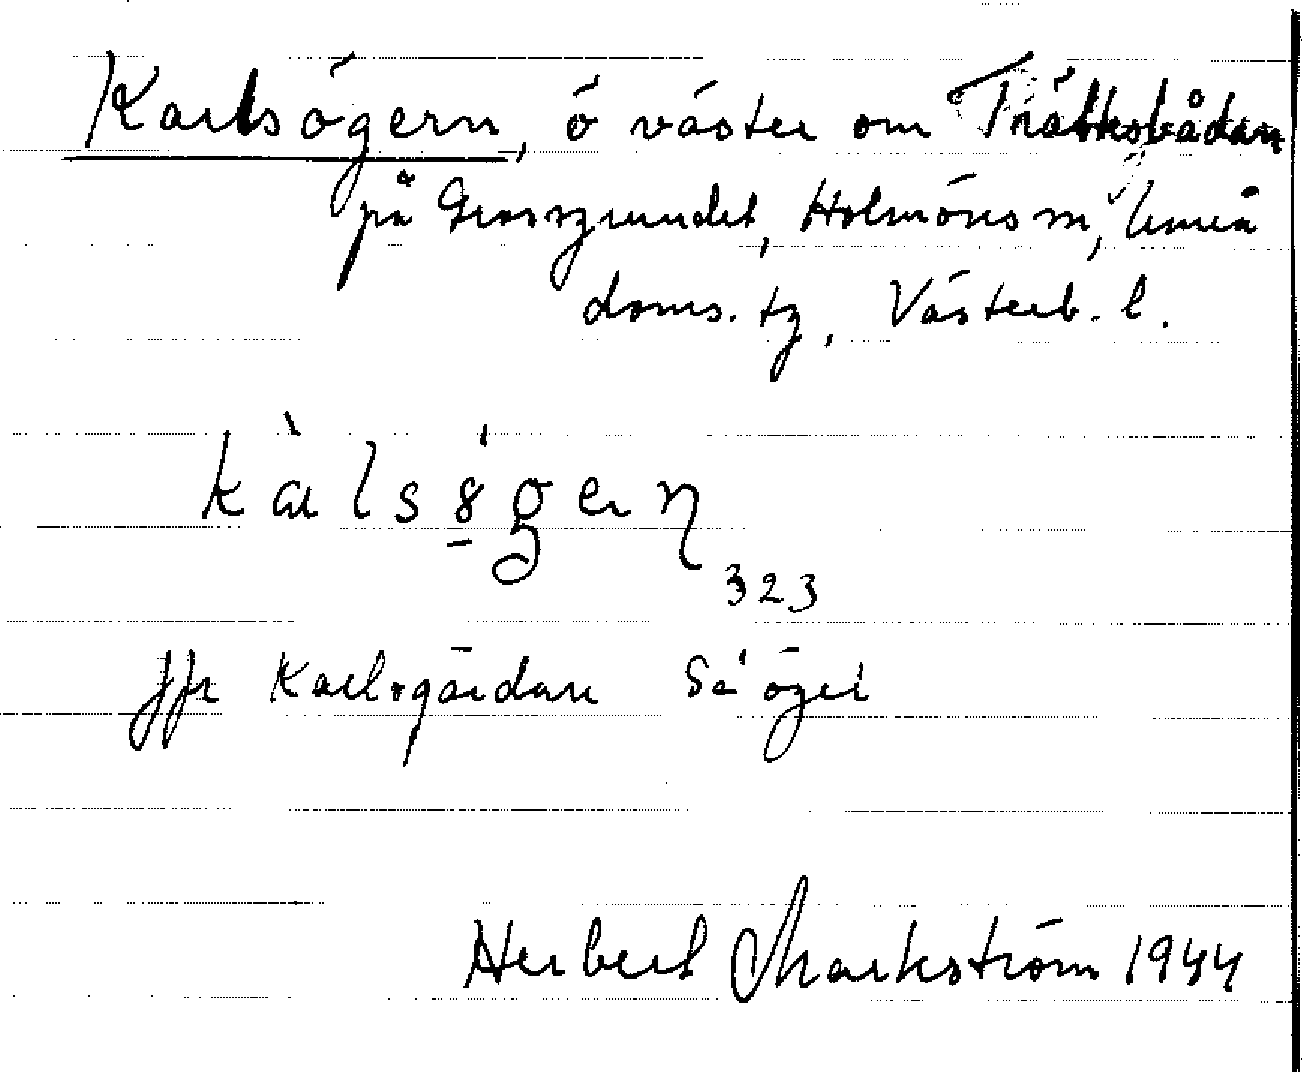 Karlsögern, ö väster om Trätthsbådan
på Grossgrundet, Holmöns sn, Umeå
doms. tg, Västerb. l.
kàlsögern
323
Jfr Karlsgårdan Så ögel
Herbert Markström 1944